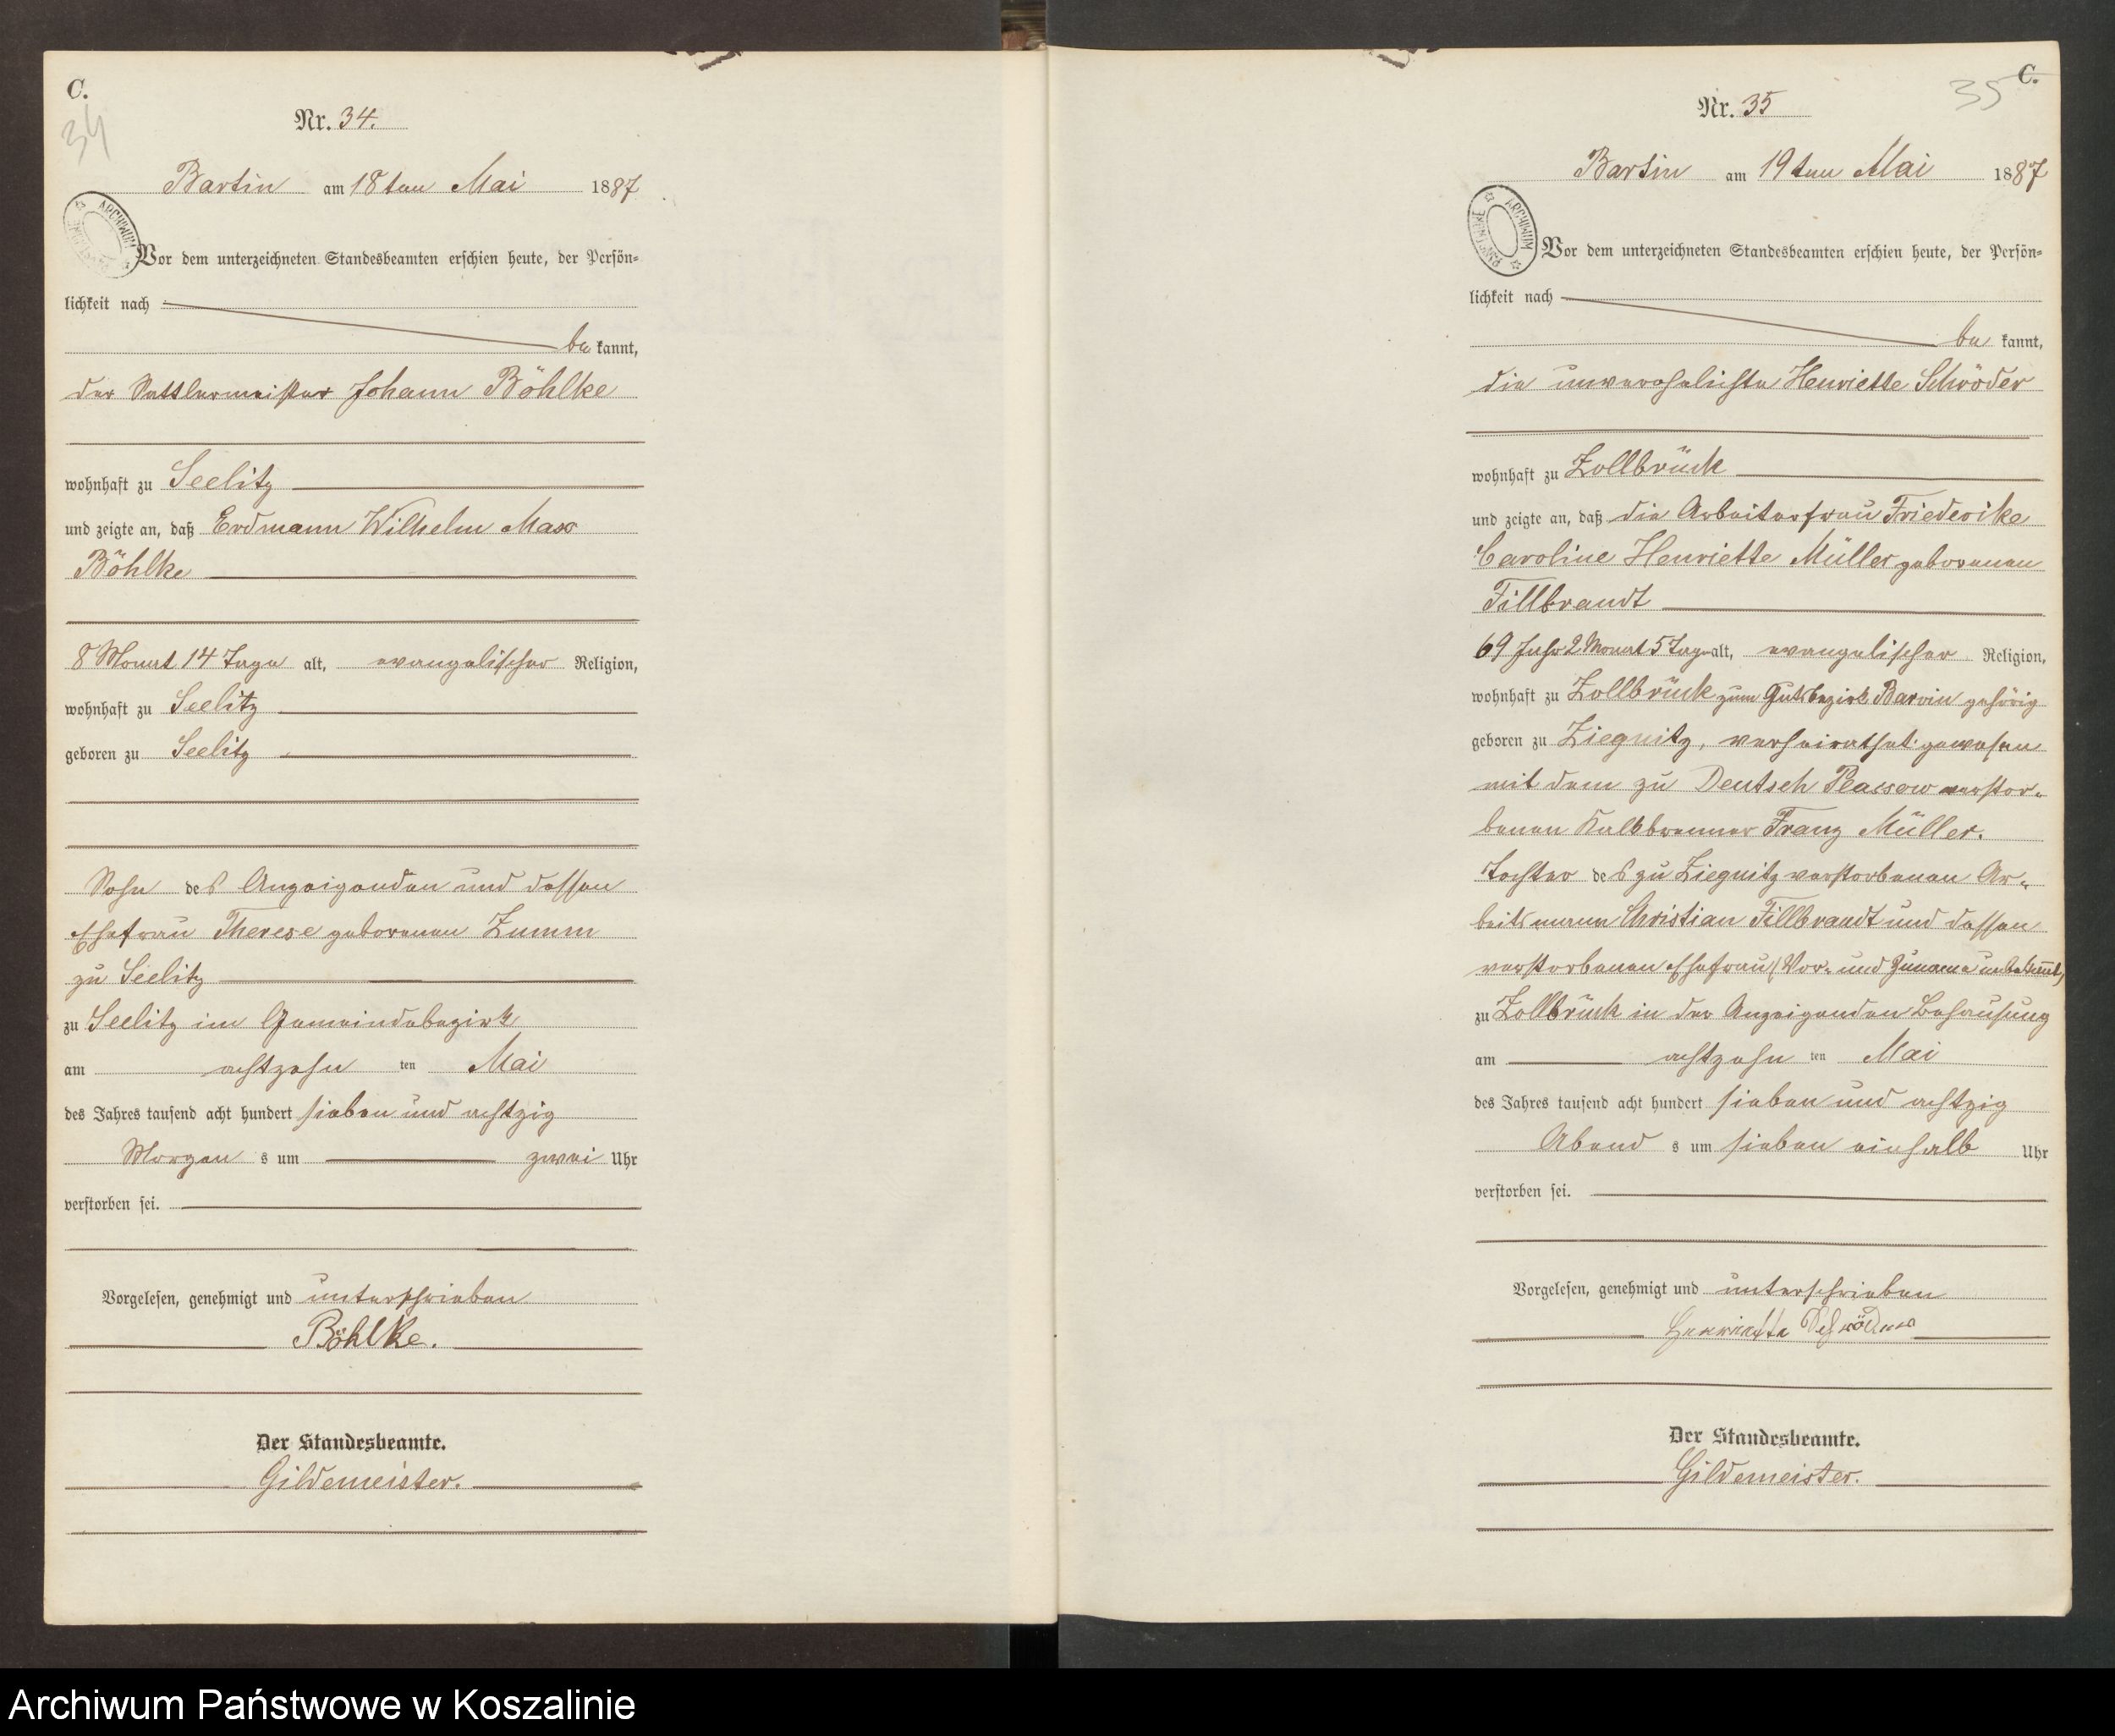 C.
34
Nr. 34.
Bartin am 18ten Mai 1887
ARCHIWUM
Vor dem unterzeichneten Standesbeamten erschien heute, der Persön=
lichkeit nach
be kannt,
der Sattlermeister Johann Böhlke
wohnhaft zu Seelitz
und zeigte an, daß Erdmann Wilhelm Max
Böhlke
8 Monat 14 Tage alt, evangelischer Religion,
wohnhaft zu Seelitz
geboren zu Seelitz
Sohn des Anzeigenden und dessen
Ehefrau Therese geborenen Zumm
zu Seelitz
zu Seelitz im Gemeindebezirk
am achtzehn ten Mai
des Jahres tausend acht hundert sieben und achtzig
Morgen s um zwei Uhr
verstorben sei.
Vorgelesen, genehmigt und unterschrieben
Böhlke.
Der Standesbeamte.
Gildemeister.
C.
35
Nr. 35
Bartin am 19ten Mai 1887
ARCHIWUM
Vor dem unterzeichneten Standesbeamten erschien heute, der Persön=
lichkeit nach
be kannt,
die unverehelichte Henriette Schröder
wohnhaft zu Zollbrück
und zeigte an, daß die Arbeiterfrau Friederike
Caroline Henriette Müller geborenen
Fillbrandt
69 Jahr 2 Monat 5 Tage alt, evangelischer Religion,
wohnhaft zu Zollbrück zum Gutsbezirk Barvin gehörig
geboren zu Ziegnitz, verheirathet gewesen
mit dem zu Deutsch Plassow verstor=
benen Kalkbrenner Franz Müller.
Tochter des zu Ziegnitz verstorbenen Ar=
beitsmann Christian Fillbrandt und dessen
verstorbenen Ehefrau (Vor= und Zuname unbekannt)
zu Zollbrück in der Anzeigenden Behausung
am achtzehn ten Mai
des Jahres tausend acht hundert sieben und achtzig
Abend s um sieben einhalb Uhr
verstorben sei.
Vorgelesen, genehmigt und unterschrieben
Henriette Schröder
Der Standesbeamte.
Gildemeister.
Archiwum Państwowe w Koszalinie